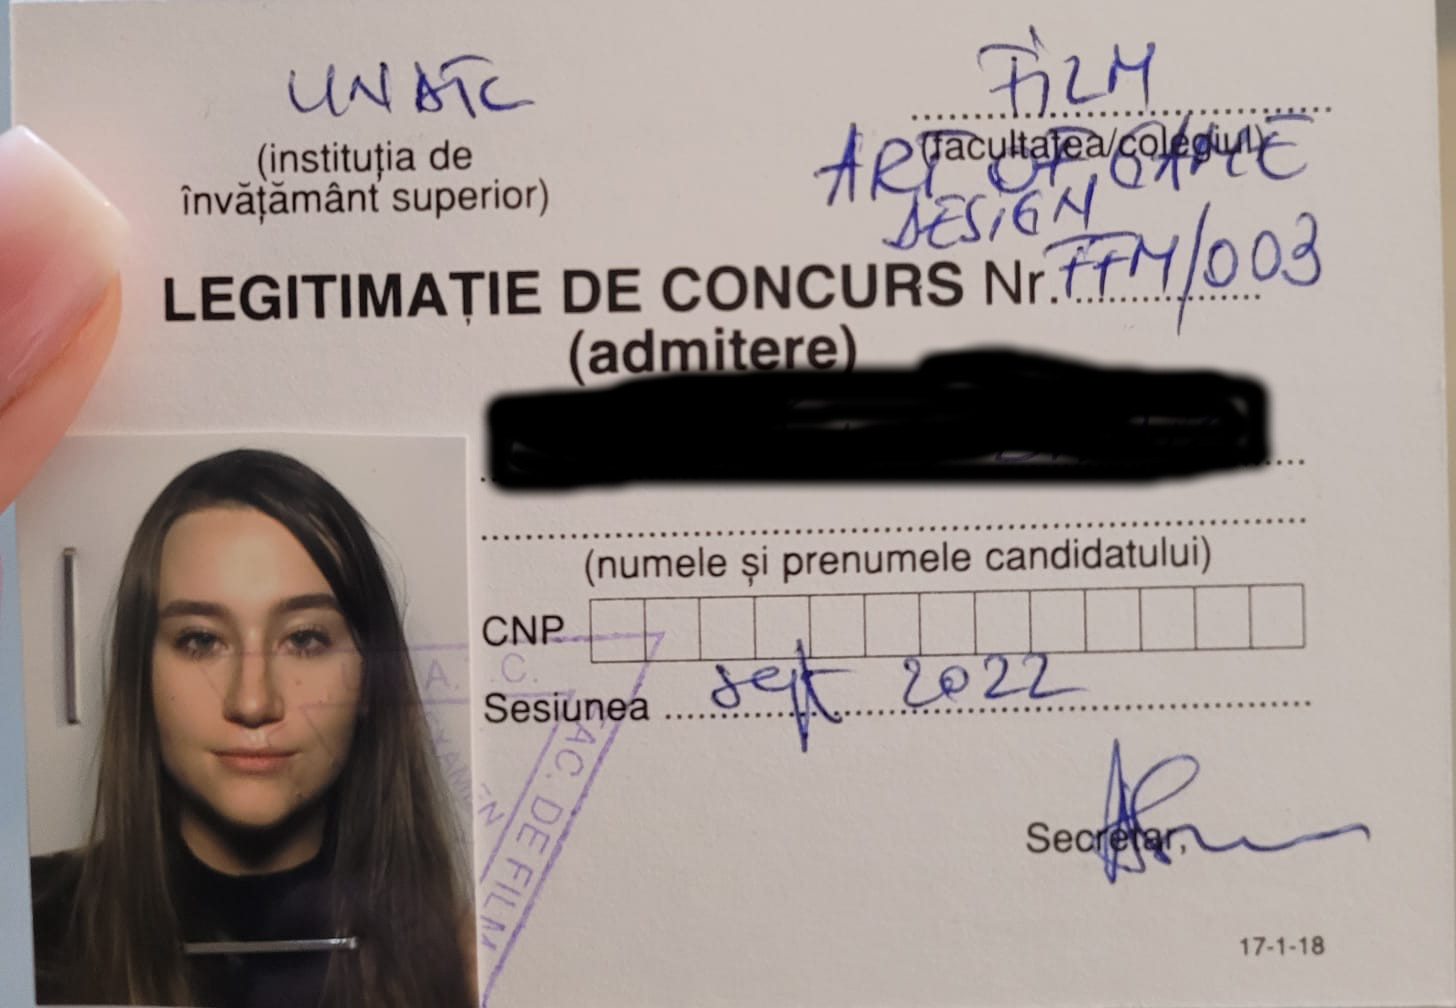 UNATC
FILM
(instituția de
învățământ superior)
(facultatea/colegiul)
ART OF GAME
DESIGN
LEGITIMAȚIE DE CONCURS Nr. FFM/003
(admitere)
(numele și prenumele candidatului)
CNP
Sesiunea sept 2022
A. C.
EXAMEN
FAC. DE FILM
Secretar,
17-1-18